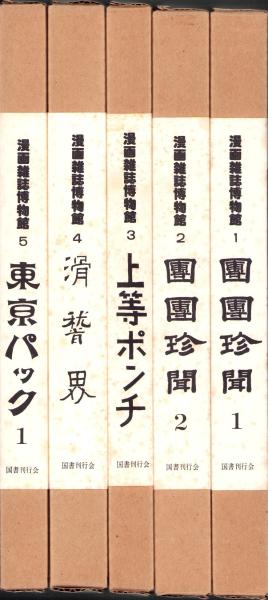 漫画雑誌博物館
1
團團珍聞
1
国書刊行会
漫画雑誌博物館
2
團團珍聞
2
国書刊行会
漫画雑誌博物館
3
上等ポンチ
国書刊行会
漫画雑誌博物館
4
滑稽界
国書刊行会
漫画雑誌博物館
5
東京パック
1
国書刊行会